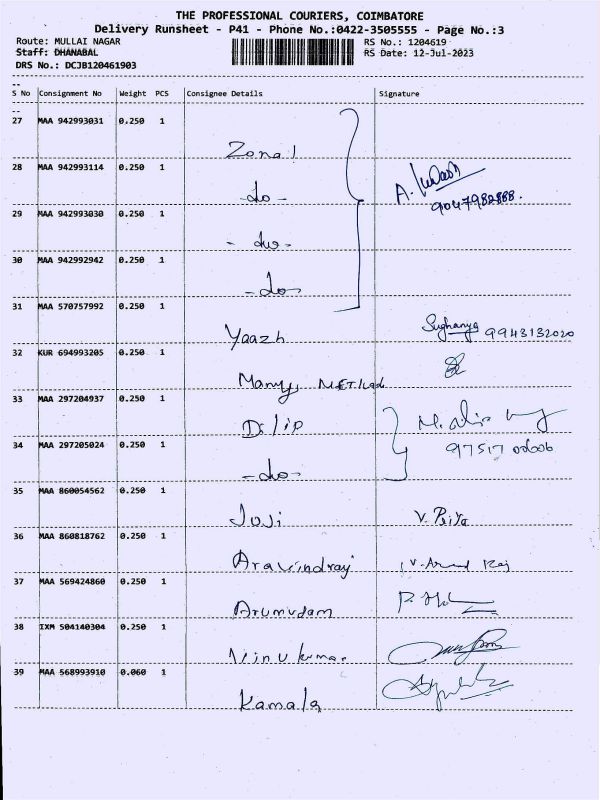 THE PROFESSIONAL COURIERS, COIMBATORE
Delivery Runsheet - P41 - Phone No.:0422-3505555 - Page No.:3
Route: MULLAI NAGAR RS No.: 1204619
Staff: DHANABAL RS Date: 12-Jul-2023
DRS No.: DCJB120461903
S No Consignment No Weight PCS Consignee Details Signature
27 MAA 942993031 0.250 1
Zonal
28 MAA 942993114 0.250 1
-do- A.
9047982888.
29 MAA 942993030 0.250 1
-do-
30 MAA 942992942 0.250 1
-do-
31 MAA 570757992 0.250 1
Yaazh Sughanya 9943132020
32 KUR 694993205 0.250 1
33 MAA 297204937 0.250 1
Dilip
34 MAA 297205024 0.250 1
-do- 97517 00606
35 MAA 860054562 0.250 1
Juji V. Priya
36 MAA 860818762 0.250 1
Aravindraj
37 MAA 569424860 0.250 1
Arumugam
38 IXM 504140304 0.250 1
Vinukumar
39 MAA 568993910 0.060 1
Kamala